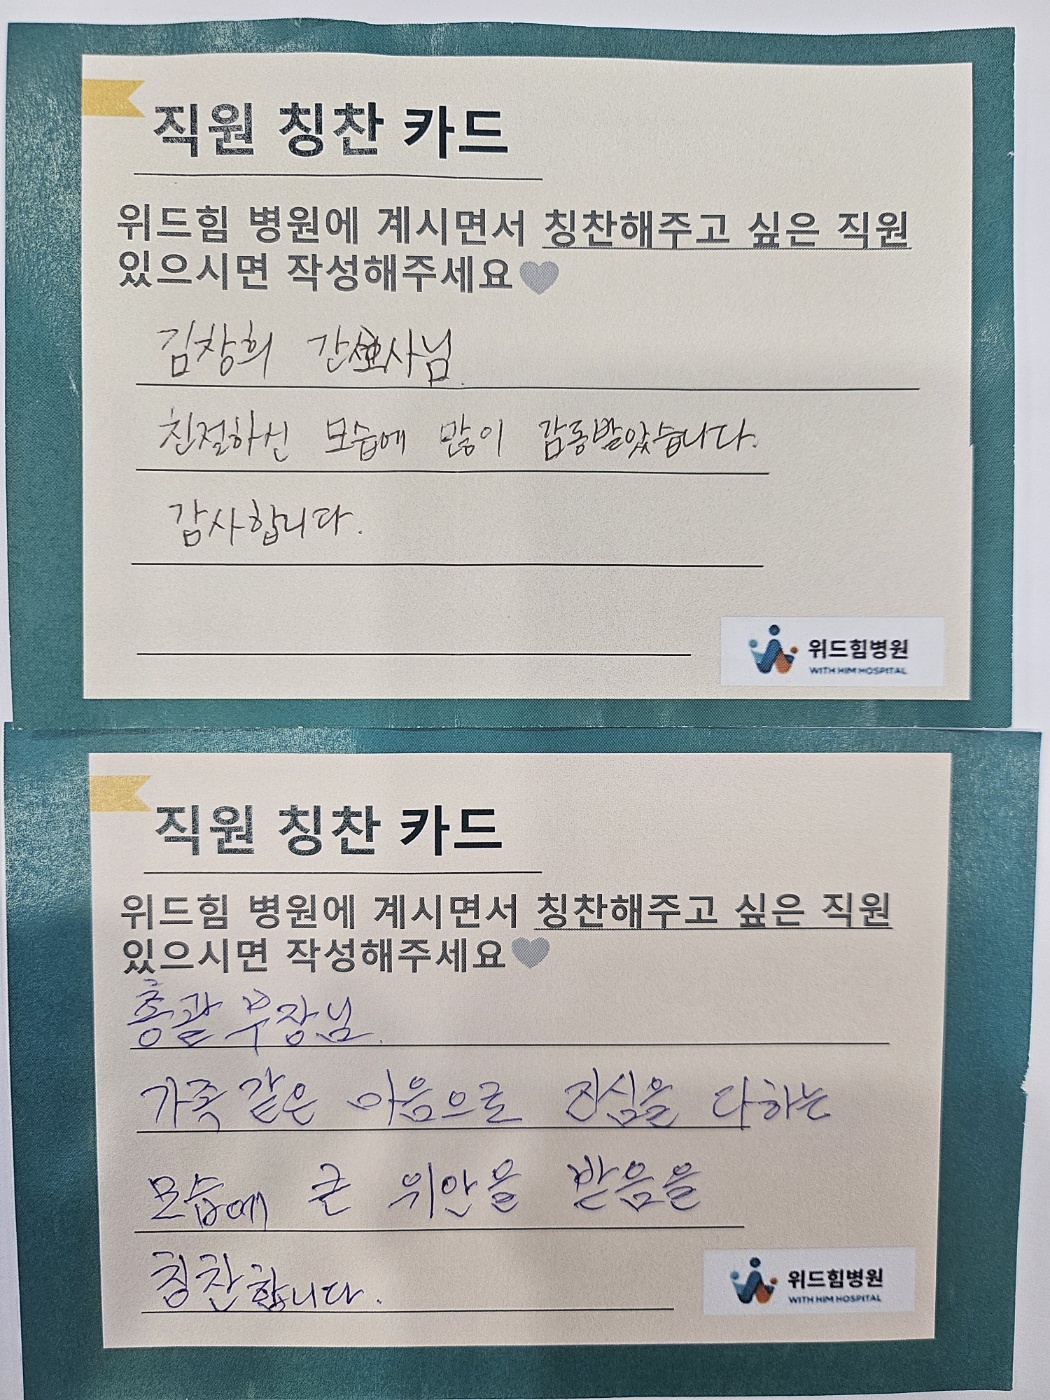 직원 칭찬 카드
위드힘 병원에 계시면서 칭찬해주고 싶은 직원
있으시면 작성해주세요
김창희 간호사님.
친절하신 모습에 많이 감동받았습니다.
감사합니다.
위드힘병원
WITH HIM HOSPITAL
직원 칭찬 카드
위드힘 병원에 계시면서 칭찬해주고 싶은 직원
있으시면 작성해주세요
총괄 부장님.
가족 같은 마음으로 진심을 다하는
모습에 큰 위안을 받음을
칭찬합니다.
위드힘병원
WITH HIM HOSPITAL